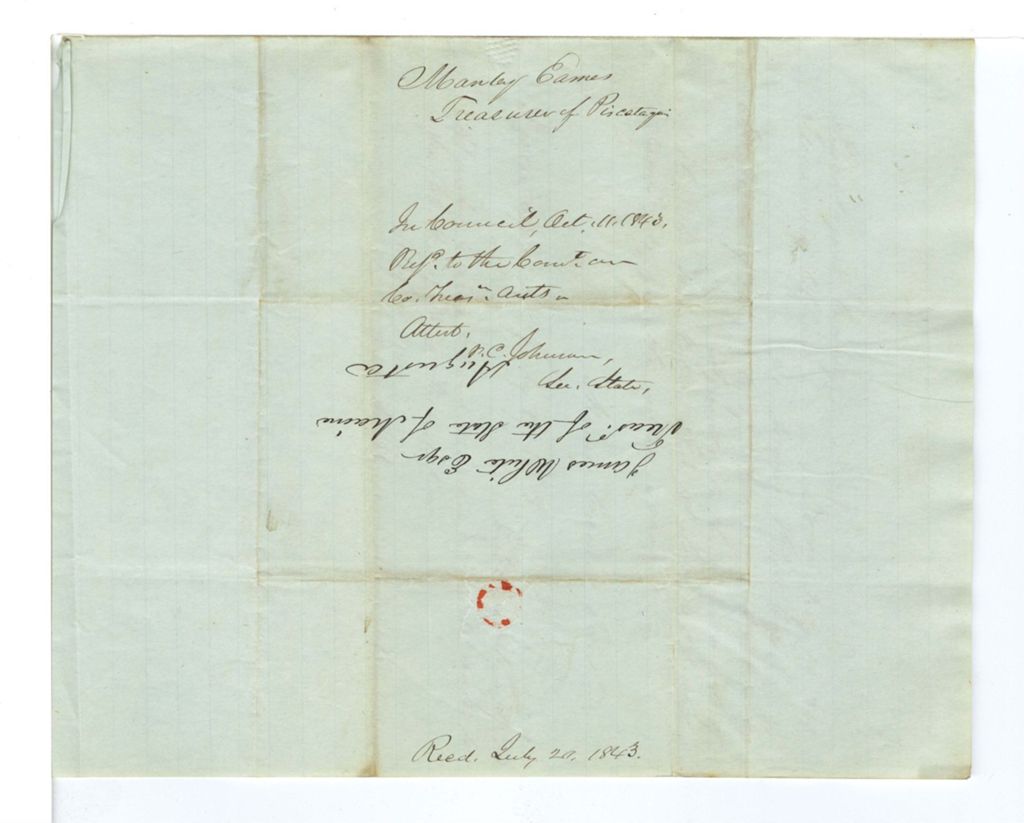 Manley Eames
Treasurer of Piscataquis
In Council, Oct. 11. 1843.
Refd. to the Comtee on
Co. Treasrs. accts
Attest,
P. C. Johnson,
Sec. State,
James White Esqr
Treasr. of the State of Maine
Augusta
Recd. July 20, 1843.